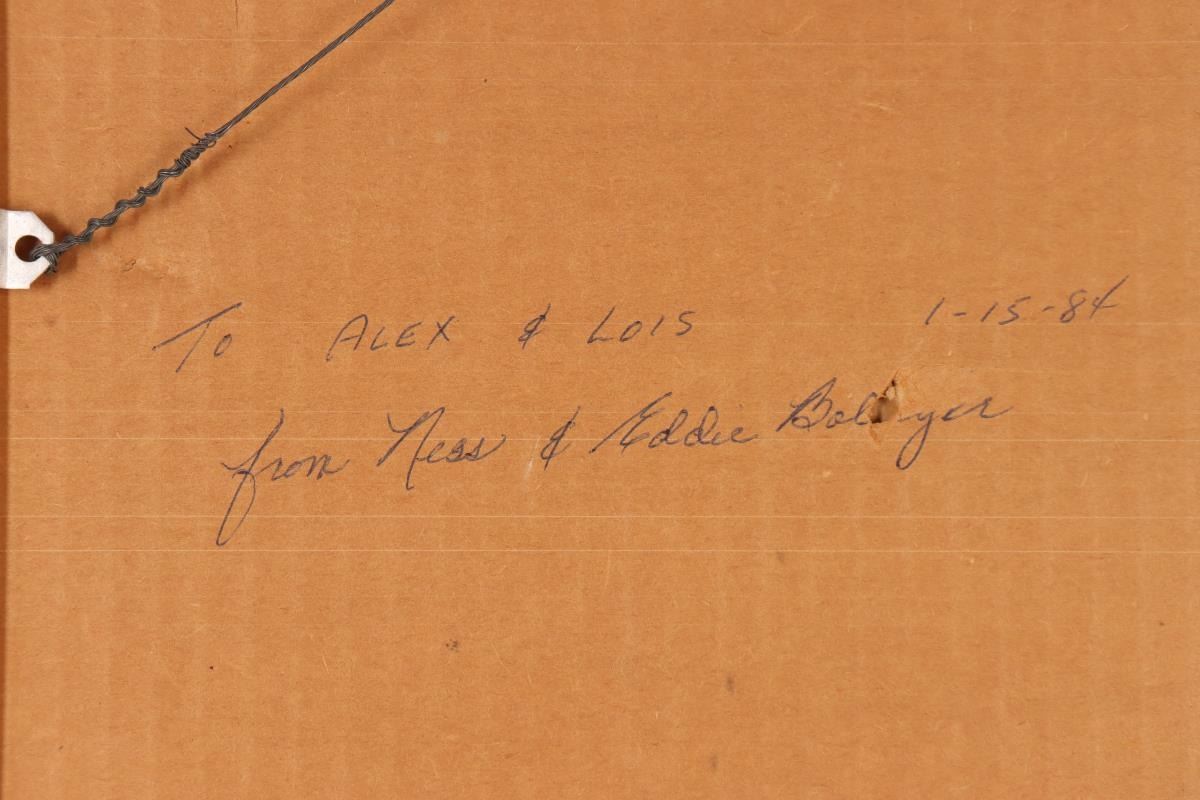 To ALEX & LOIS 1-15-84
from Ness & Eddie